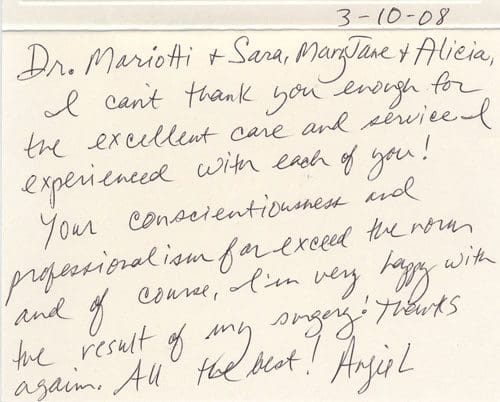 3-10-08
Dr. Mariotti + Sara, MaryJane + Alicia,
I can't thank you enough for
the excellent care and service I
experienced with each of you!
Your conscientiousness and
professionalism far exceed the norm
and of course, I'm very happy with
the result of my surgery! Thanks
again. All the best! Angie L